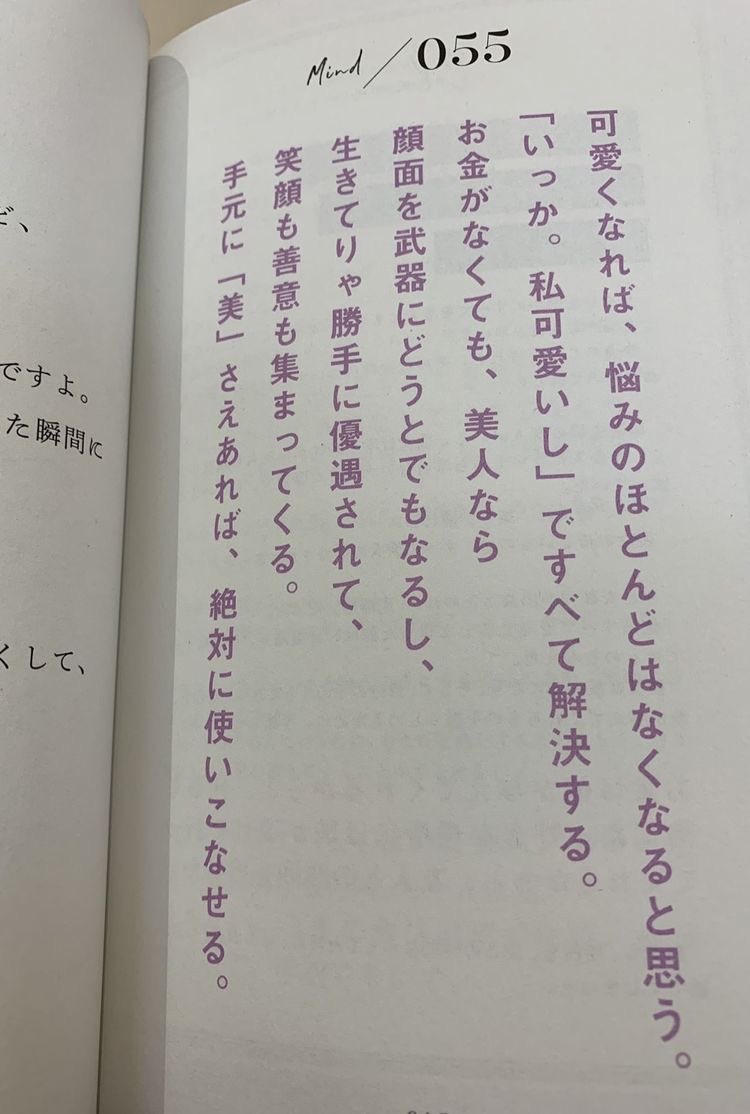 Mind / 055
可愛くなれば、悩みのほとんどはなくなると思う。
「いっか。私可愛いし」ですべて解決する。
お金がなくても、美人なら
顔面を武器にどうとでもなるし、
生きてりゃ勝手に優遇されて、
笑顔も善意も集まってくる。
手元に「美」さえあれば、絶対に使いこなせる。
ど、
ですよ。
た瞬間に
くして、